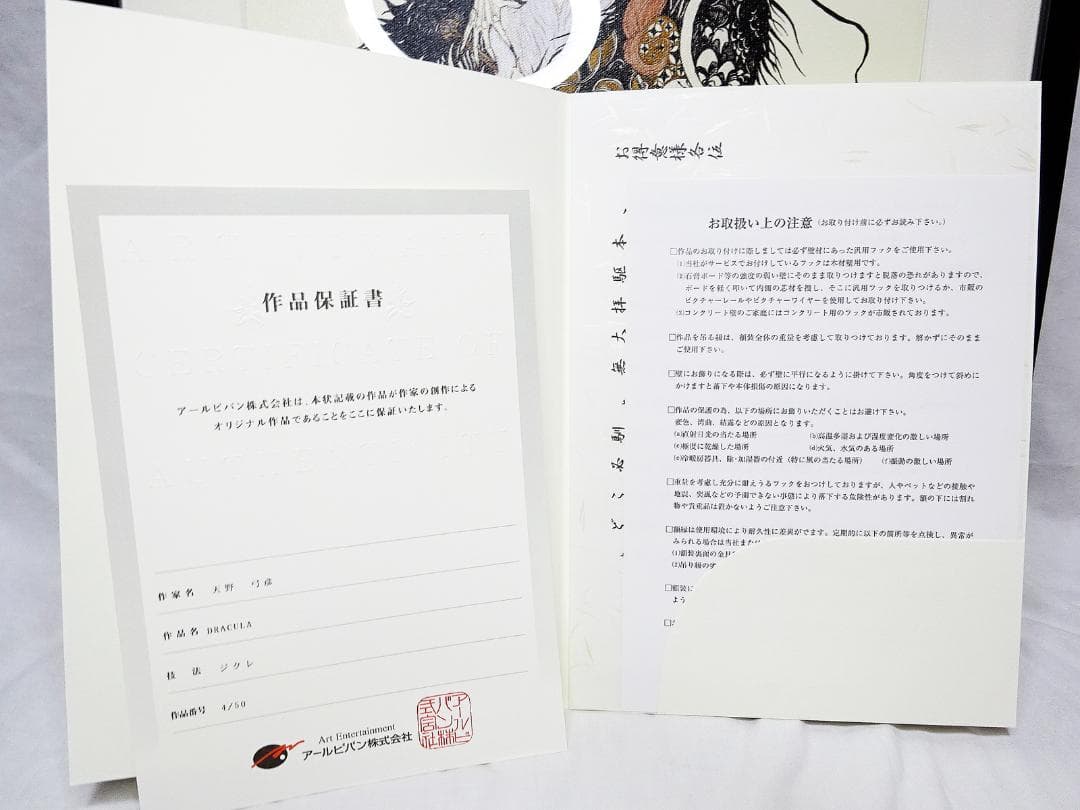 作品保証書
アールビバン株式会社は、本状記載の作品が作家の創作による
オリジナル作品であることをここに保証いたします。
作家名 天野 弓彦
作品名 DRACULA
技法 ジクレ
作品番号 4/50
Art Entertainment
アールビバン株式会社
アールビバン株式会社
お得意様各位
お取扱い上の注意(お取り付け前に必ずお読み下さい。)
□作品のお取り付けに際しましては必ず壁材にあった汎用フックをご使用下さい。
(1)当社がサービスでお付けしているフックは木材壁用です。
(2)石膏ボード等の強度の弱い壁にそのまま取りつけますと脱落の恐れがありますので、
ボードを軽く叩いて内側の芯材を探し、そこに汎用フックを取りつけるか、市販の
ピクチャーレールやピクチャーワイヤーを使用してお取り付け下さい。
(3)コンクリート壁のご家庭にはコンクリート用のフックが市販されております。
□作品を吊る紐は、額装全体の重量を考慮して取りつけております。解かずにそのまま
ご使用下さい。
□壁にお飾りになる際は、必ず壁に平行になるように掛けて下さい。角度をつけて斜めに
かけますと落下や本体損傷の原因になります。
□作品の保護の為、以下の場所にお飾りいただくことはお避け下さい。
変色、湾曲、結露などの原因となります。
(a)直射日光の当たる場所 (b)高温多湿および温度変化の激しい場所
(c)極度に乾燥した場所 (d)火気、水気のある場所
(e)冷暖房器具、除・加湿器の付近(特に風の当たる場所) (f)振動の激しい場所
□重量を考慮し充分に耐えうるフックをおつけしておりますが、人やペットなどの接触や
地震、突風などの予測できない事態により落下する危険性があります。額の下には割れ
物や貴重品は置かないようご注意下さい。
□額縁は使用環境により耐久性に差異がでます。定期的に以下の箇所等を点検し、異常が
みられる場合は当社また
(1)額装裏面の金具
(2)吊り紐の
□額装に
よう